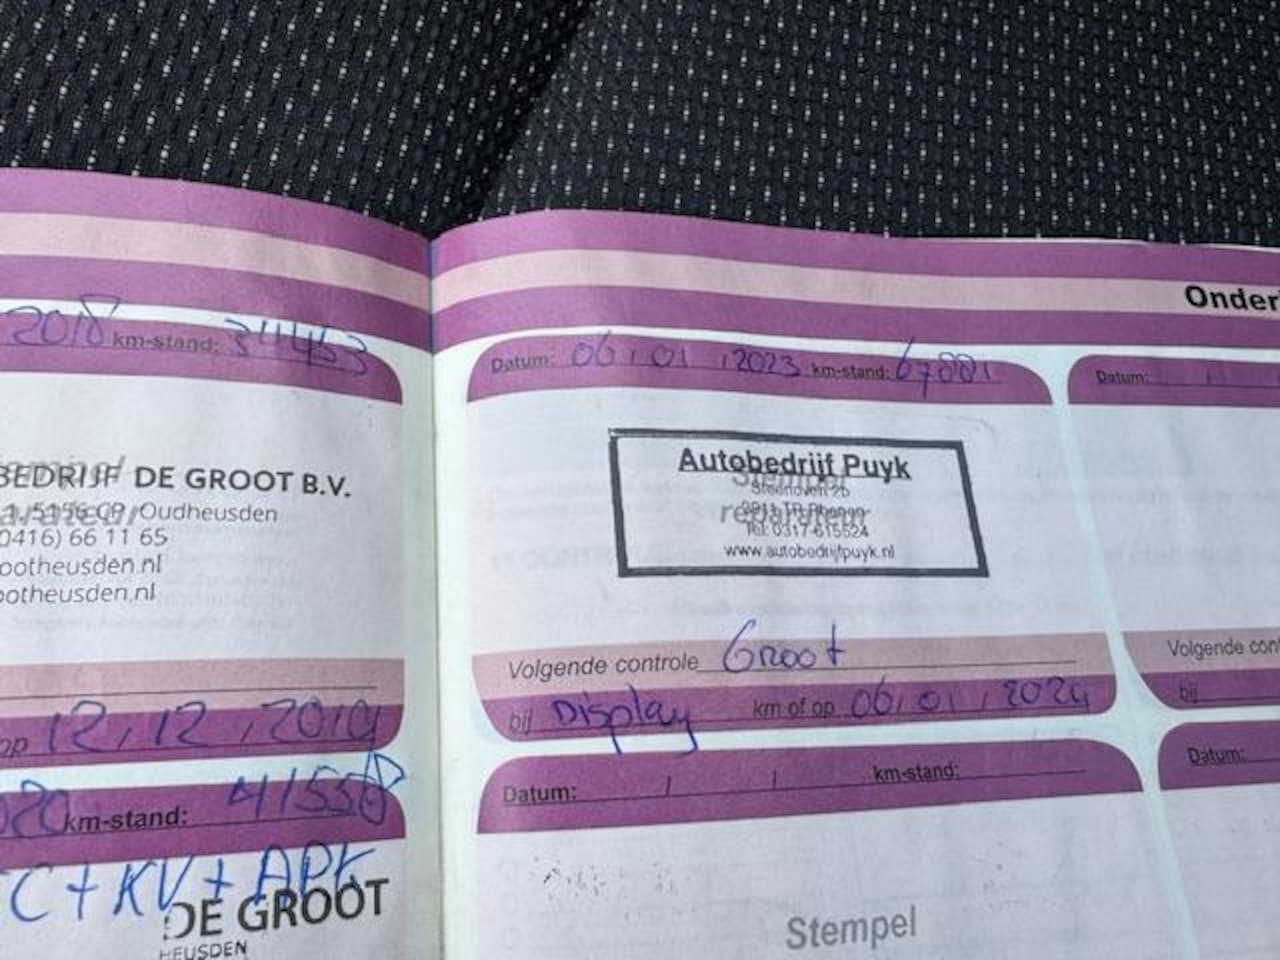 Onder
2018 km-stand: 34453
BEDRIJF DE GROOT B.V.
1, 5156 CP Oudheusden
0416) 66 11 65
ootheusden.nl
ootheusden.nl
op 12,12,2019
020 km-stand: 41558
C + KV + APK
DE GROOT
HEUSDEN
Datum: 06,01,2023 km-stand: 67881
Autobedrijf Puyk
Stempel
reparateur
Tel: 0317-615524
www.autobedrijfpuyk.nl
Volgende controle Groot
bij Display km of op 06,01,2024
Datum: / / km-stand:
Stempel
Datum:
Volgende con
bij
Datum: